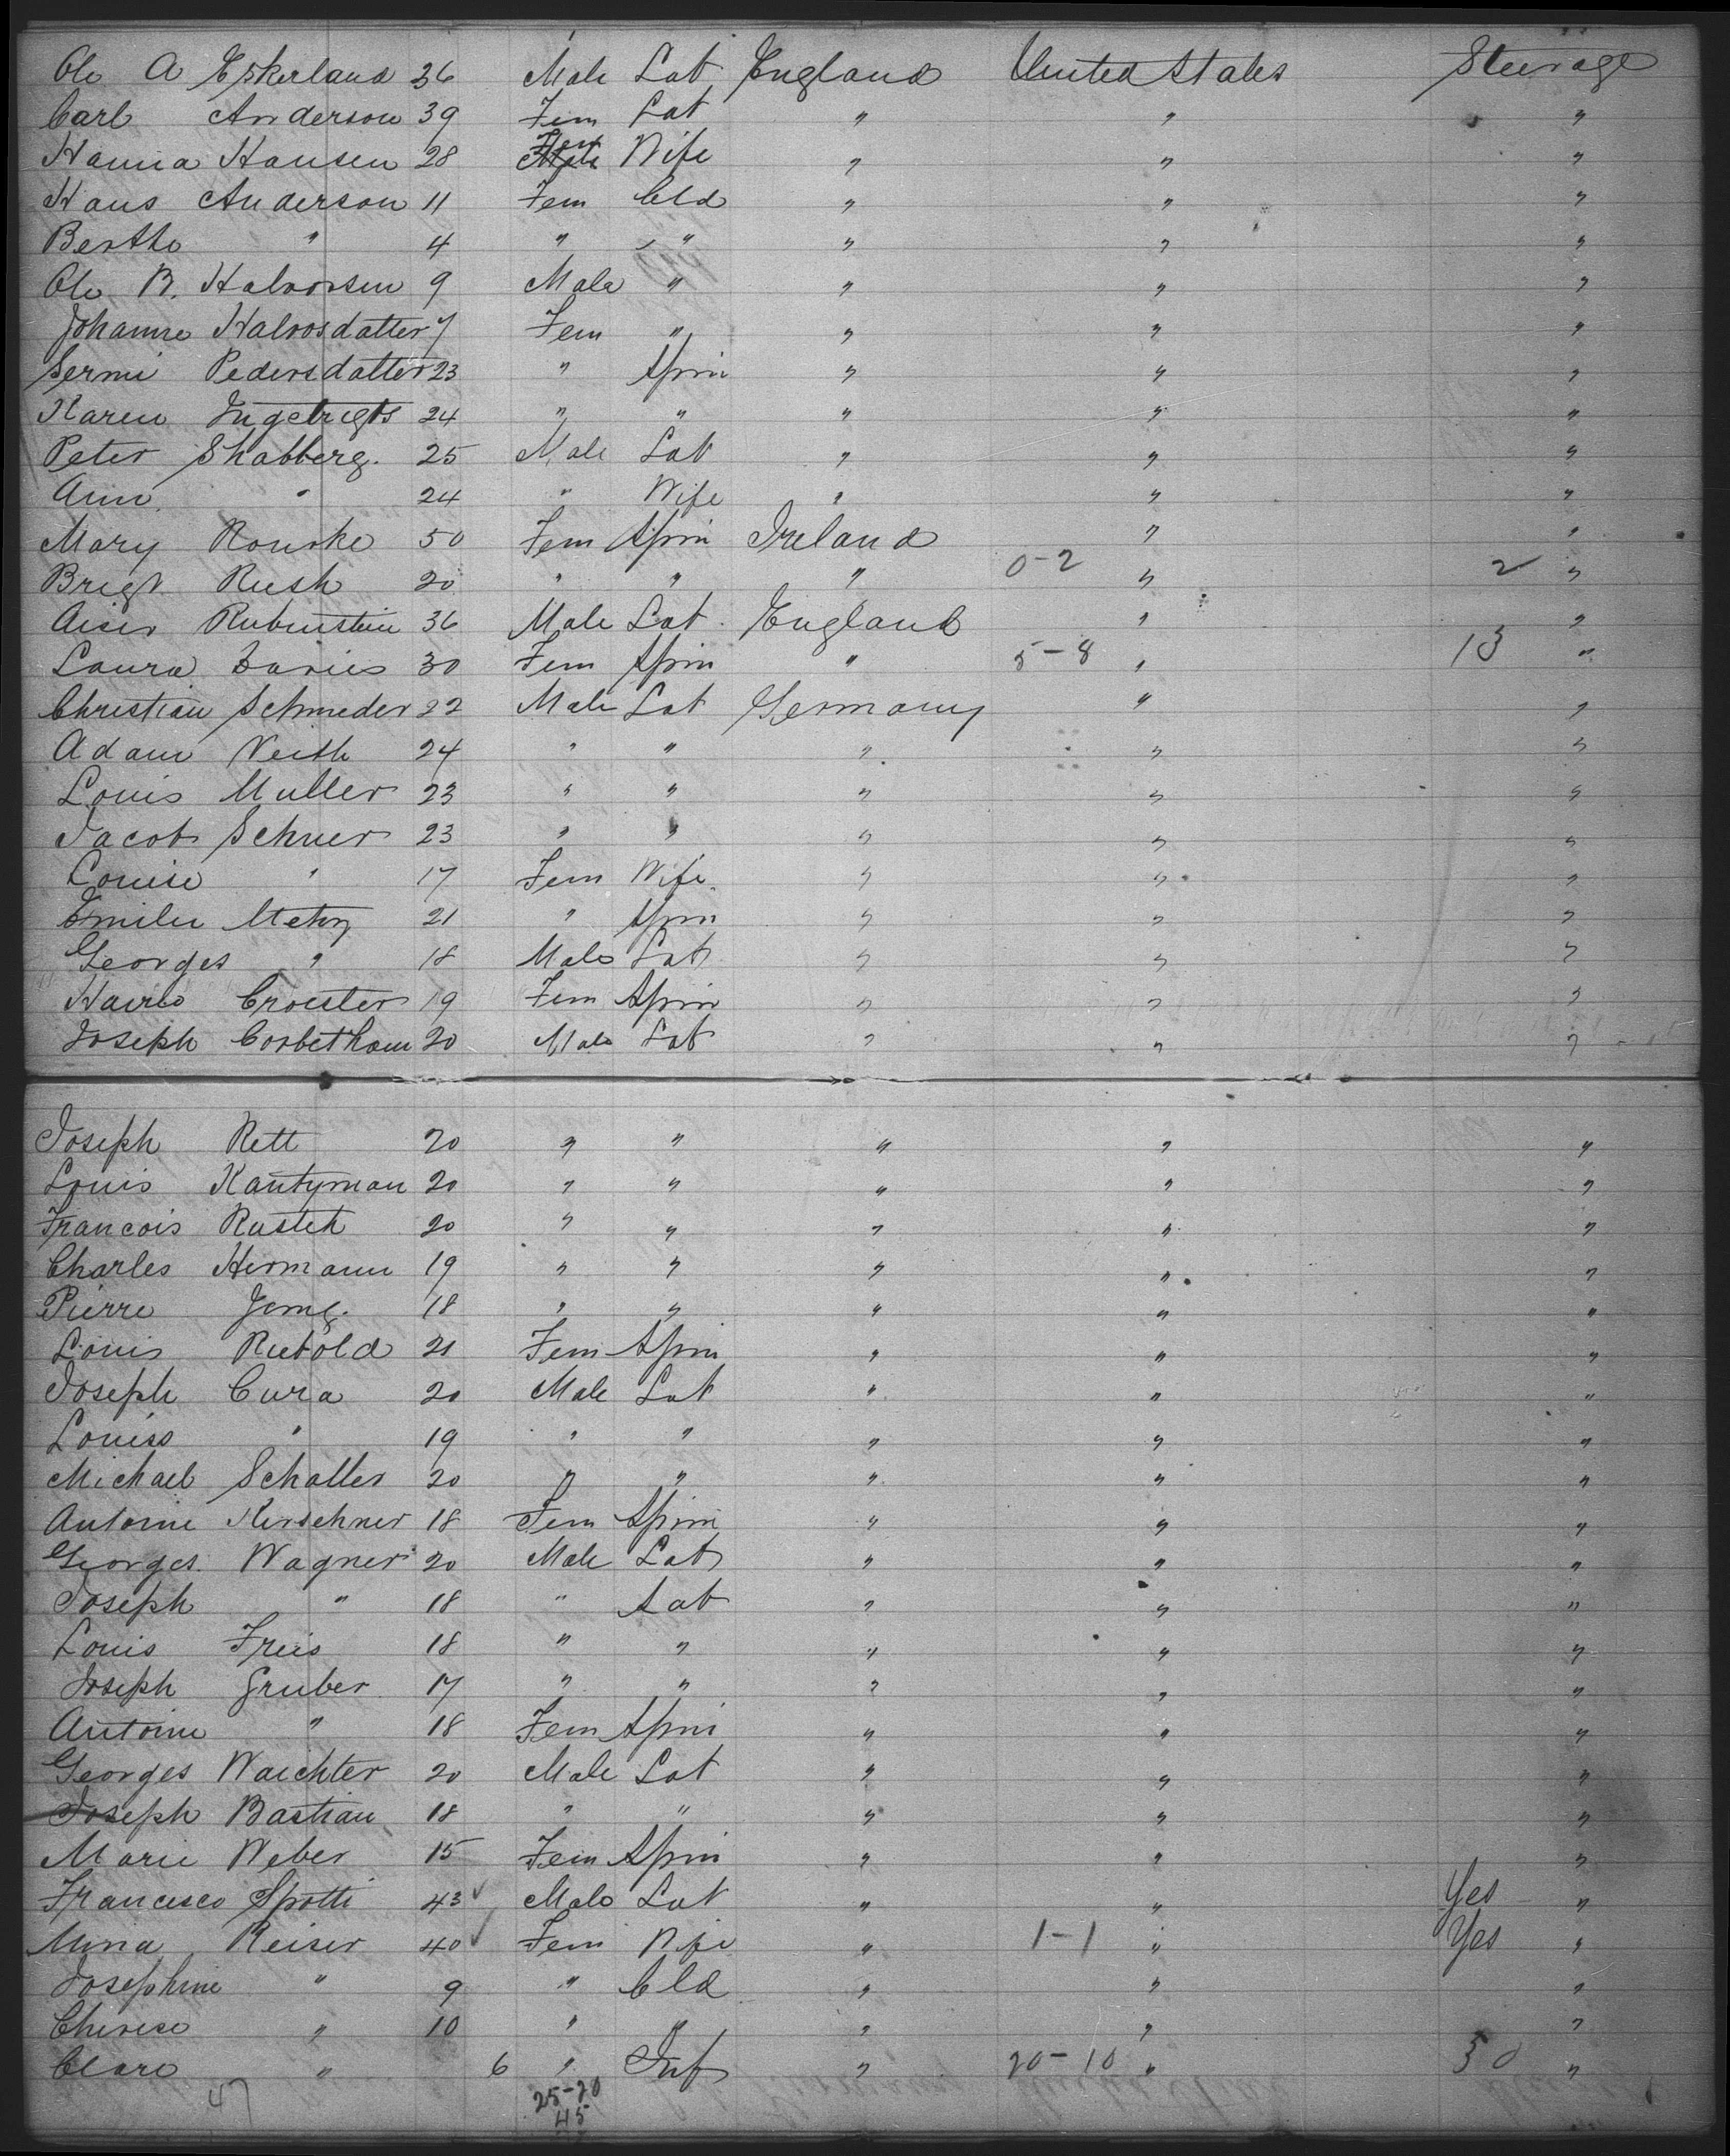 Ole A Eskerland 36 Male Lab England United States Steerage
Carl Anderson 39 Fem Lab " " "
Hanna Hansen 28 Fem Wife " " "
Hans Anderson 11 Fem Cld " " "
Berthe " 4 " " " " "
Ole B. Halvorsen 9 Male " " " "
Johanne Halvosdatter 7 Fem " " " "
Pedersdatter 23 " Spin " " "
Karen Ingebrigts 24 " " " " "
Peter Skabberg. 25 Male Lab " " "
Ann. " 24 " Wife " " "
Mary Rourke 50 Fem Spin Ireland " "
Brigt Rush 20 " " " 0-2 " 2 "
Rubinstein 36 Male Lab. England " "
Laura Davies 30 Fem Spin " 5-8 " 13 "
Christian Schneeder 22 Male Lab Germany " "
Adam Veith 24 " " " " "
Louis Muller 23 " " " " "
Jacob Schuer 23 " " " " "
Louise " 17 Fem Wife " " "
Emilie Metz 21 " Spin " " "
Georges " 18 Male Lab " " "
Crouster 19 Fem Spin " " "
Joseph 20 Male Lab " " "
Joseph Rett 20 " " " " "
Louis Kantzman 20 " " " " "
Francois Rusteh 20 " " " " "
Charles Hermann 19 " " " " "
Pierre 18 " " " " "
Louis Rubold 21 Fem Spin " " "
Joseph Cura 20 Male Lab " " "
Louiss " 19 " " " " "
Michael Schaller 20 " " " " "
Antoine Kirschner 18 Fem Spin " " "
Georges. Wagner 20 Male Lab " " "
Joseph " 18 " Lab " " "
Louis Freis 18 " " " " "
Joseph Gruber 17 " " " " "
Antoine " 18 Fem Spin " " "
Georges Waichter 20 Male Lab " " "
Joseph Bastian 18 " " " " "
Marie Weber 15 Fem Spin " " "
Francesco Spotti 43 ✓ Male Lab " " Yes "
Mina Reiser 40 ✓ Fem Wife " 1-1 " Yes "
Josephine " 9 " Cld " " "
Cherese " 10 " " " " "
Clare " 6 " Inf " 20-10 " 30 "
47 25-20
45